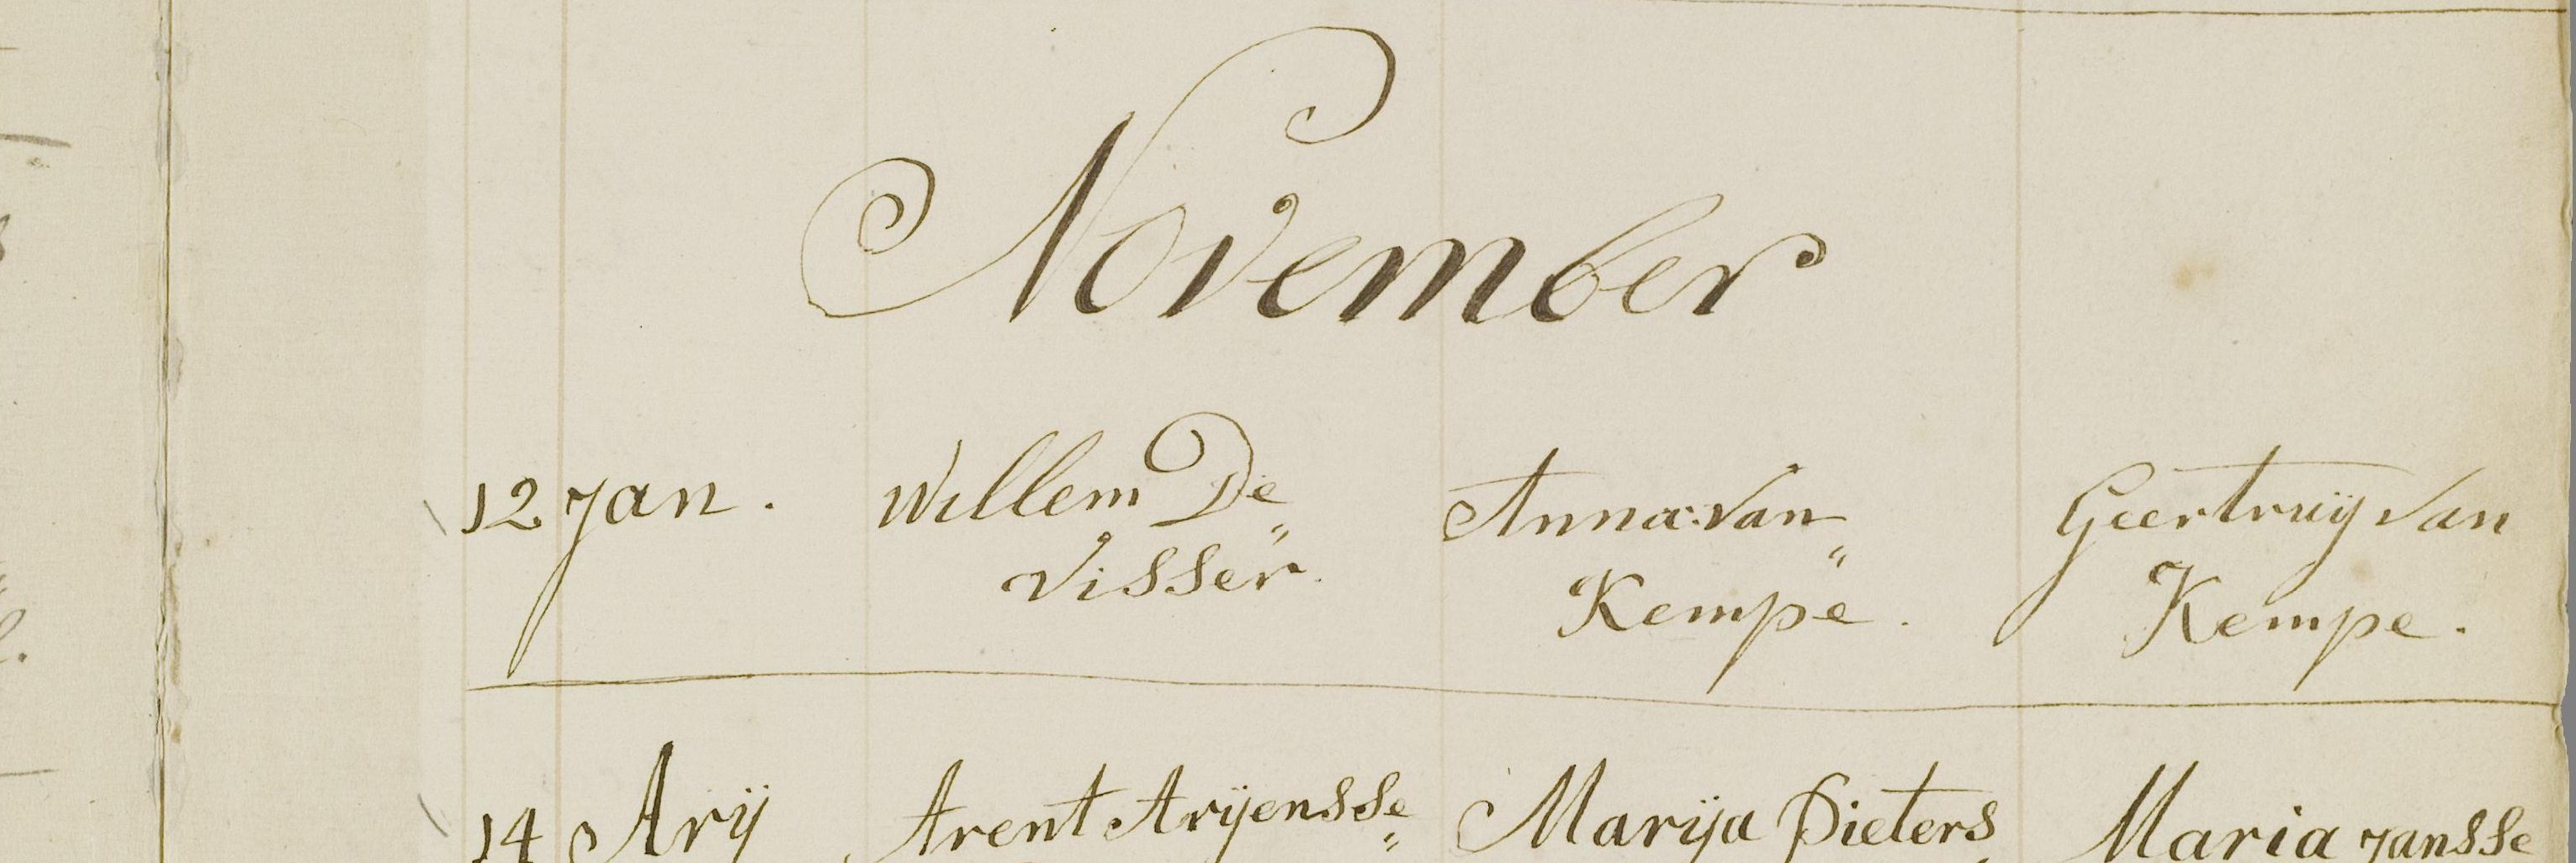 November
12 Jan. Willem De Anna: Van Geertruÿ Van
" Visser. " Kempe. Kempe.
14 Arÿ Arent Arÿensse Marÿa Pieters Maria Jansse